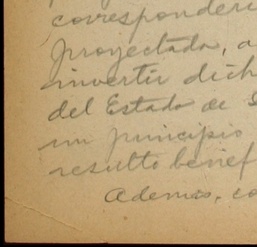 corresponder
proyectada, a
invertir dich
del Estado de S
un principio
resulte benef
Ademas, co